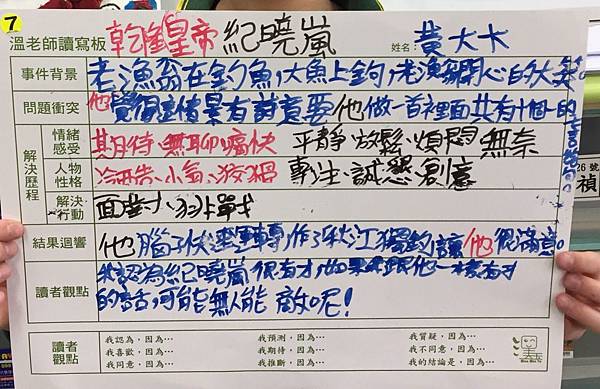 7
溫老師讀寫板 乾隆皇帝 紀曉嵐 姓名: 黃大卡
事件背景 老漁翁在釣魚,大魚上鉤,老漁翁開心的大笑
問題衝突 他覺得這情景有詩意要他做一百裡面共有十個一的詩
解決歷程
情緒感受 期待、無聊、痛快 平靜、放鬆、煩悶、無奈
人物性格 冷酷、小氣、狡猾 專注、誠懇、創意
解決行動 面對挑戰
結果迴響 他腦子快速運轉,作了秋江獨釣讓他很滿意。
讀者觀點 我認為紀曉嵐很有才,如果跟他一樣有才
的話,可能無人能敵呢!
讀者觀點
我認為,因為… 我預測,因為… 我質疑,因為…
我喜歡,因為… 我期待,因為… 我不同意,因為…
我同意,因為… 我推斷,因為… 我的結論是,因為…
26 號
禎